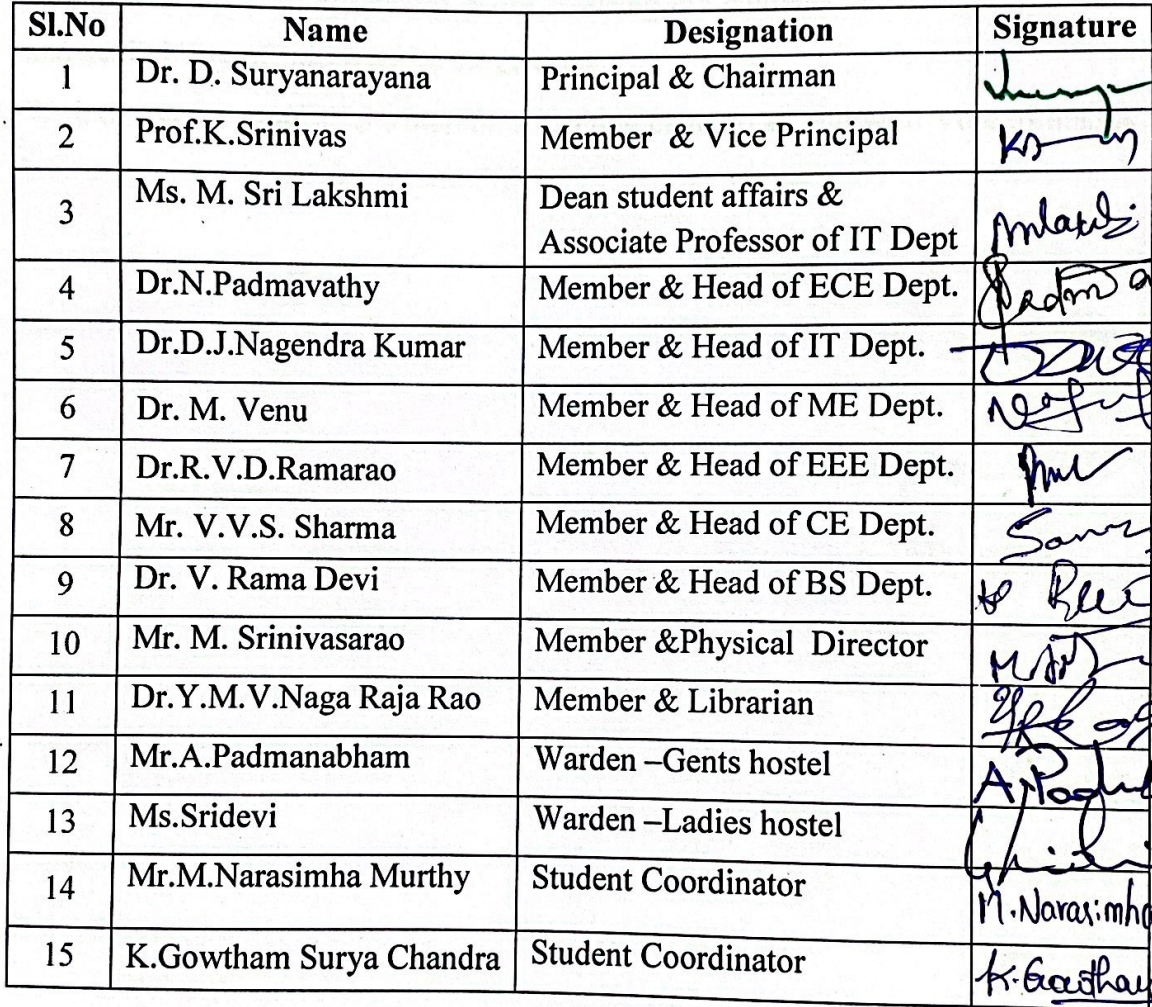 Sl.No Name Designation Signature
1 Dr. D. Suryanarayana Principal & Chairman
2 Prof.K.Srinivas Member & Vice Principal
3 Ms. M. Sri Lakshmi Dean student affairs &
Associate Professor of IT Dept
4 Dr.N.Padmavathy Member & Head of ECE Dept.
5 Dr.D.J.Nagendra Kumar Member & Head of IT Dept.
6 Dr. M. Venu Member & Head of ME Dept.
7 Dr.R.V.D.Ramarao Member & Head of EEE Dept.
8 Mr. V.V.S. Sharma Member & Head of CE Dept.
9 Dr. V. Rama Devi Member & Head of BS Dept.
10 Mr. M. Srinivasarao Member &Physical Director
11 Dr.Y.M.V.Naga Raja Rao Member & Librarian
12 Mr.A.Padmanabham Warden –Gents hostel
13 Ms.Sridevi Warden –Ladies hostel
14 Mr.M.Narasimha Murthy Student Coordinator M.Narasimha
15 K.Gowtham Surya Chandra Student Coordinator K.Gowtham